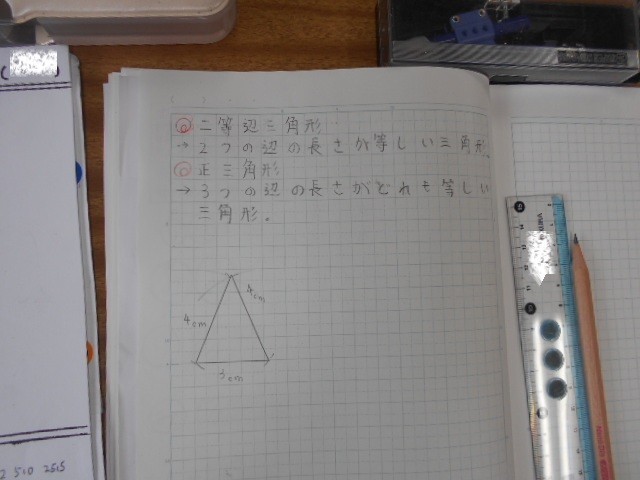 ◎二等辺三角形
→2つの辺の長さが等しい三角形。
◎正三角形
→3つの辺の長さがどれも等しい
三角形。
4cm
4cm
3cm